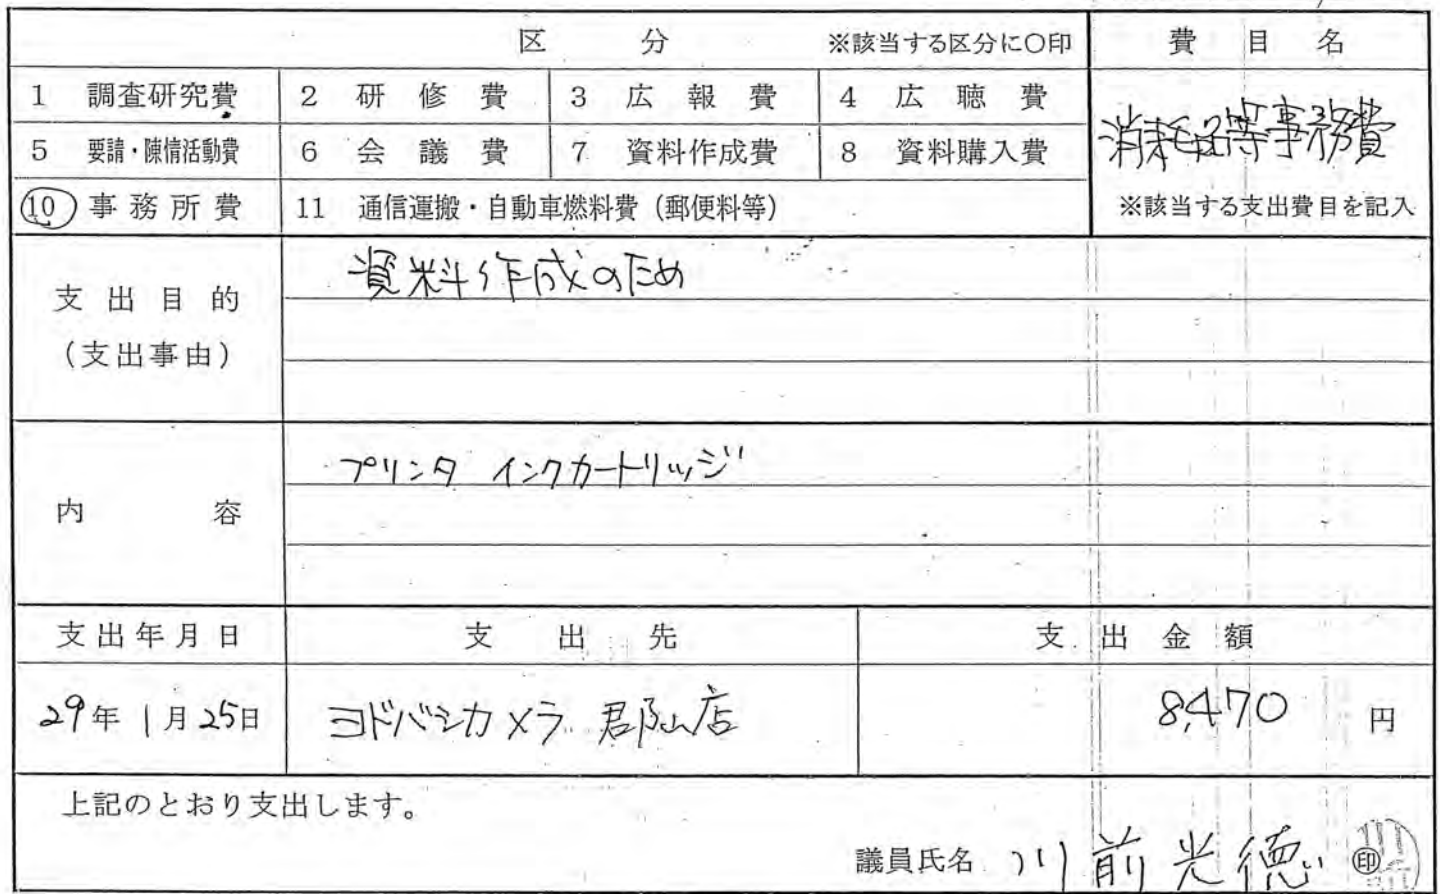 区 分 ※該当する区分に○印 費目名
1 調査研究費 2 研修費 3 広報費 4 広聴費
消耗品等事務費
5 要請・陳情活動費 6 会議費 7 資料作成費 8 資料購入費
10 事務所費 11 通信運搬・自動車燃料費(郵便料等) ※該当する支出費目を記入
資料作成のため
支出目的
(支出事由)
プリンタ インクカートリッジ
内容
支出年月日 支出先 支出金額
29年1月25日 ヨドバシカメラ 郡山店 8,470 円
上記のとおり支出します。
議員氏名 川前光徳 印